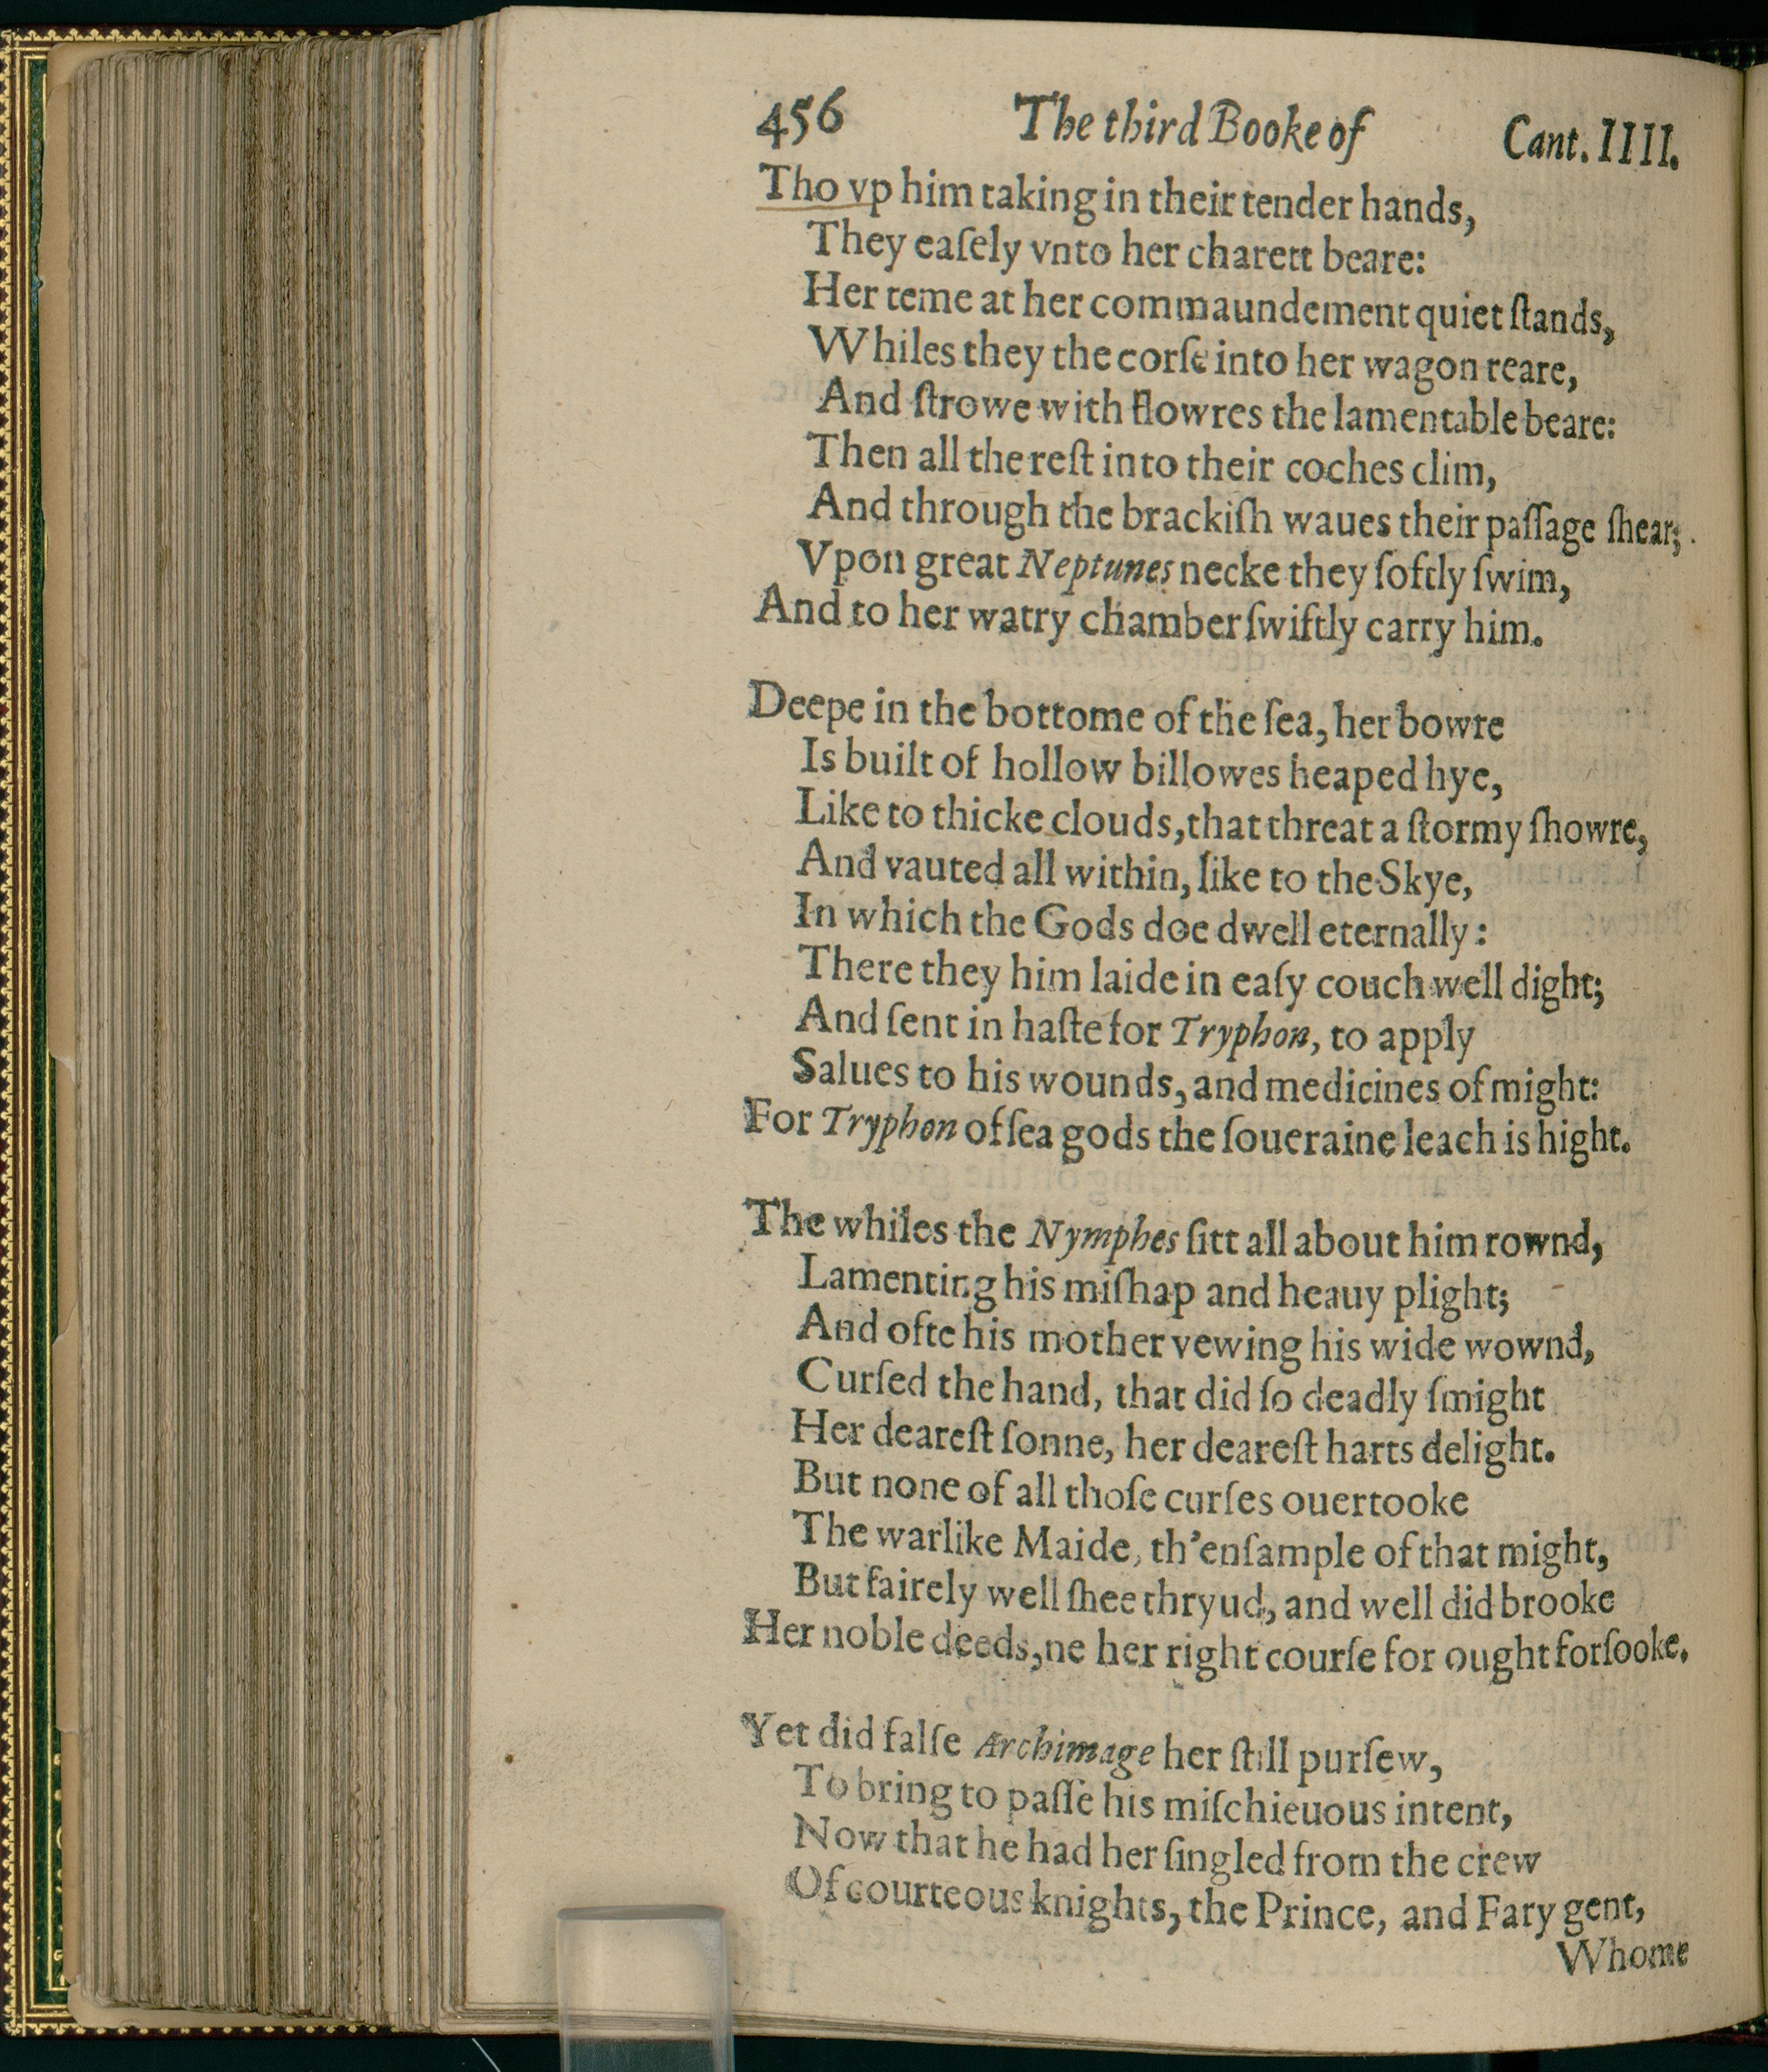 456 The third Booke of Cant. IIII.
Tho vp him taking in their tender hands,
They eaſely vnto her charett beare:
Her teme at her commaundement quiet ſtands,
Whiles they the corſe into her wagon reare,
And ſtrowe with flowres the lamentable beare:
Then all the reſt into their coches clim,
And through the brackiſh waues their paſſage ſhear;
Vpon great Neptunes necke they ſoftly ſwim,
And to her watry chamber ſwiftly carry him.
Deepe in the bottome of the ſea, her bowre
Is built of hollow billowes heaped hye,
Like to thicke clouds, that threat a ſtormy ſhowre,
And vauted all within, like to the Skye,
In which the Gods doe dwell eternally:
There they him laide in eaſy couch well dight;
And ſent in haſte for Tryphon, to apply
Salues to his wounds, and medicines of might:
For Tryphon of ſea gods the ſoueraine leach is hight.
The whiles the Nymphes ſitt all about him rownd,
Lamenting his miſhap and heauy plight;
And ofte his mother vewing his wide wownd,
Curſed the hand, that did ſo deadly ſmight
Her deareſt ſonne, her deareſt harts delight.
But none of all thoſe curſes ouertooke
The warlike Maide, th'enſample of that might,
But fairely well ſhee thryud, and well did brooke
Her noble deeds, ne her right courſe for ought forſooke.
Yet did falſe Archimage her ſtill purſew,
To bring to paſſe his miſchieuous intent,
Now that he had her ſingled from the crew
Of courteous knights, the Prince, and Fary gent,
Whome